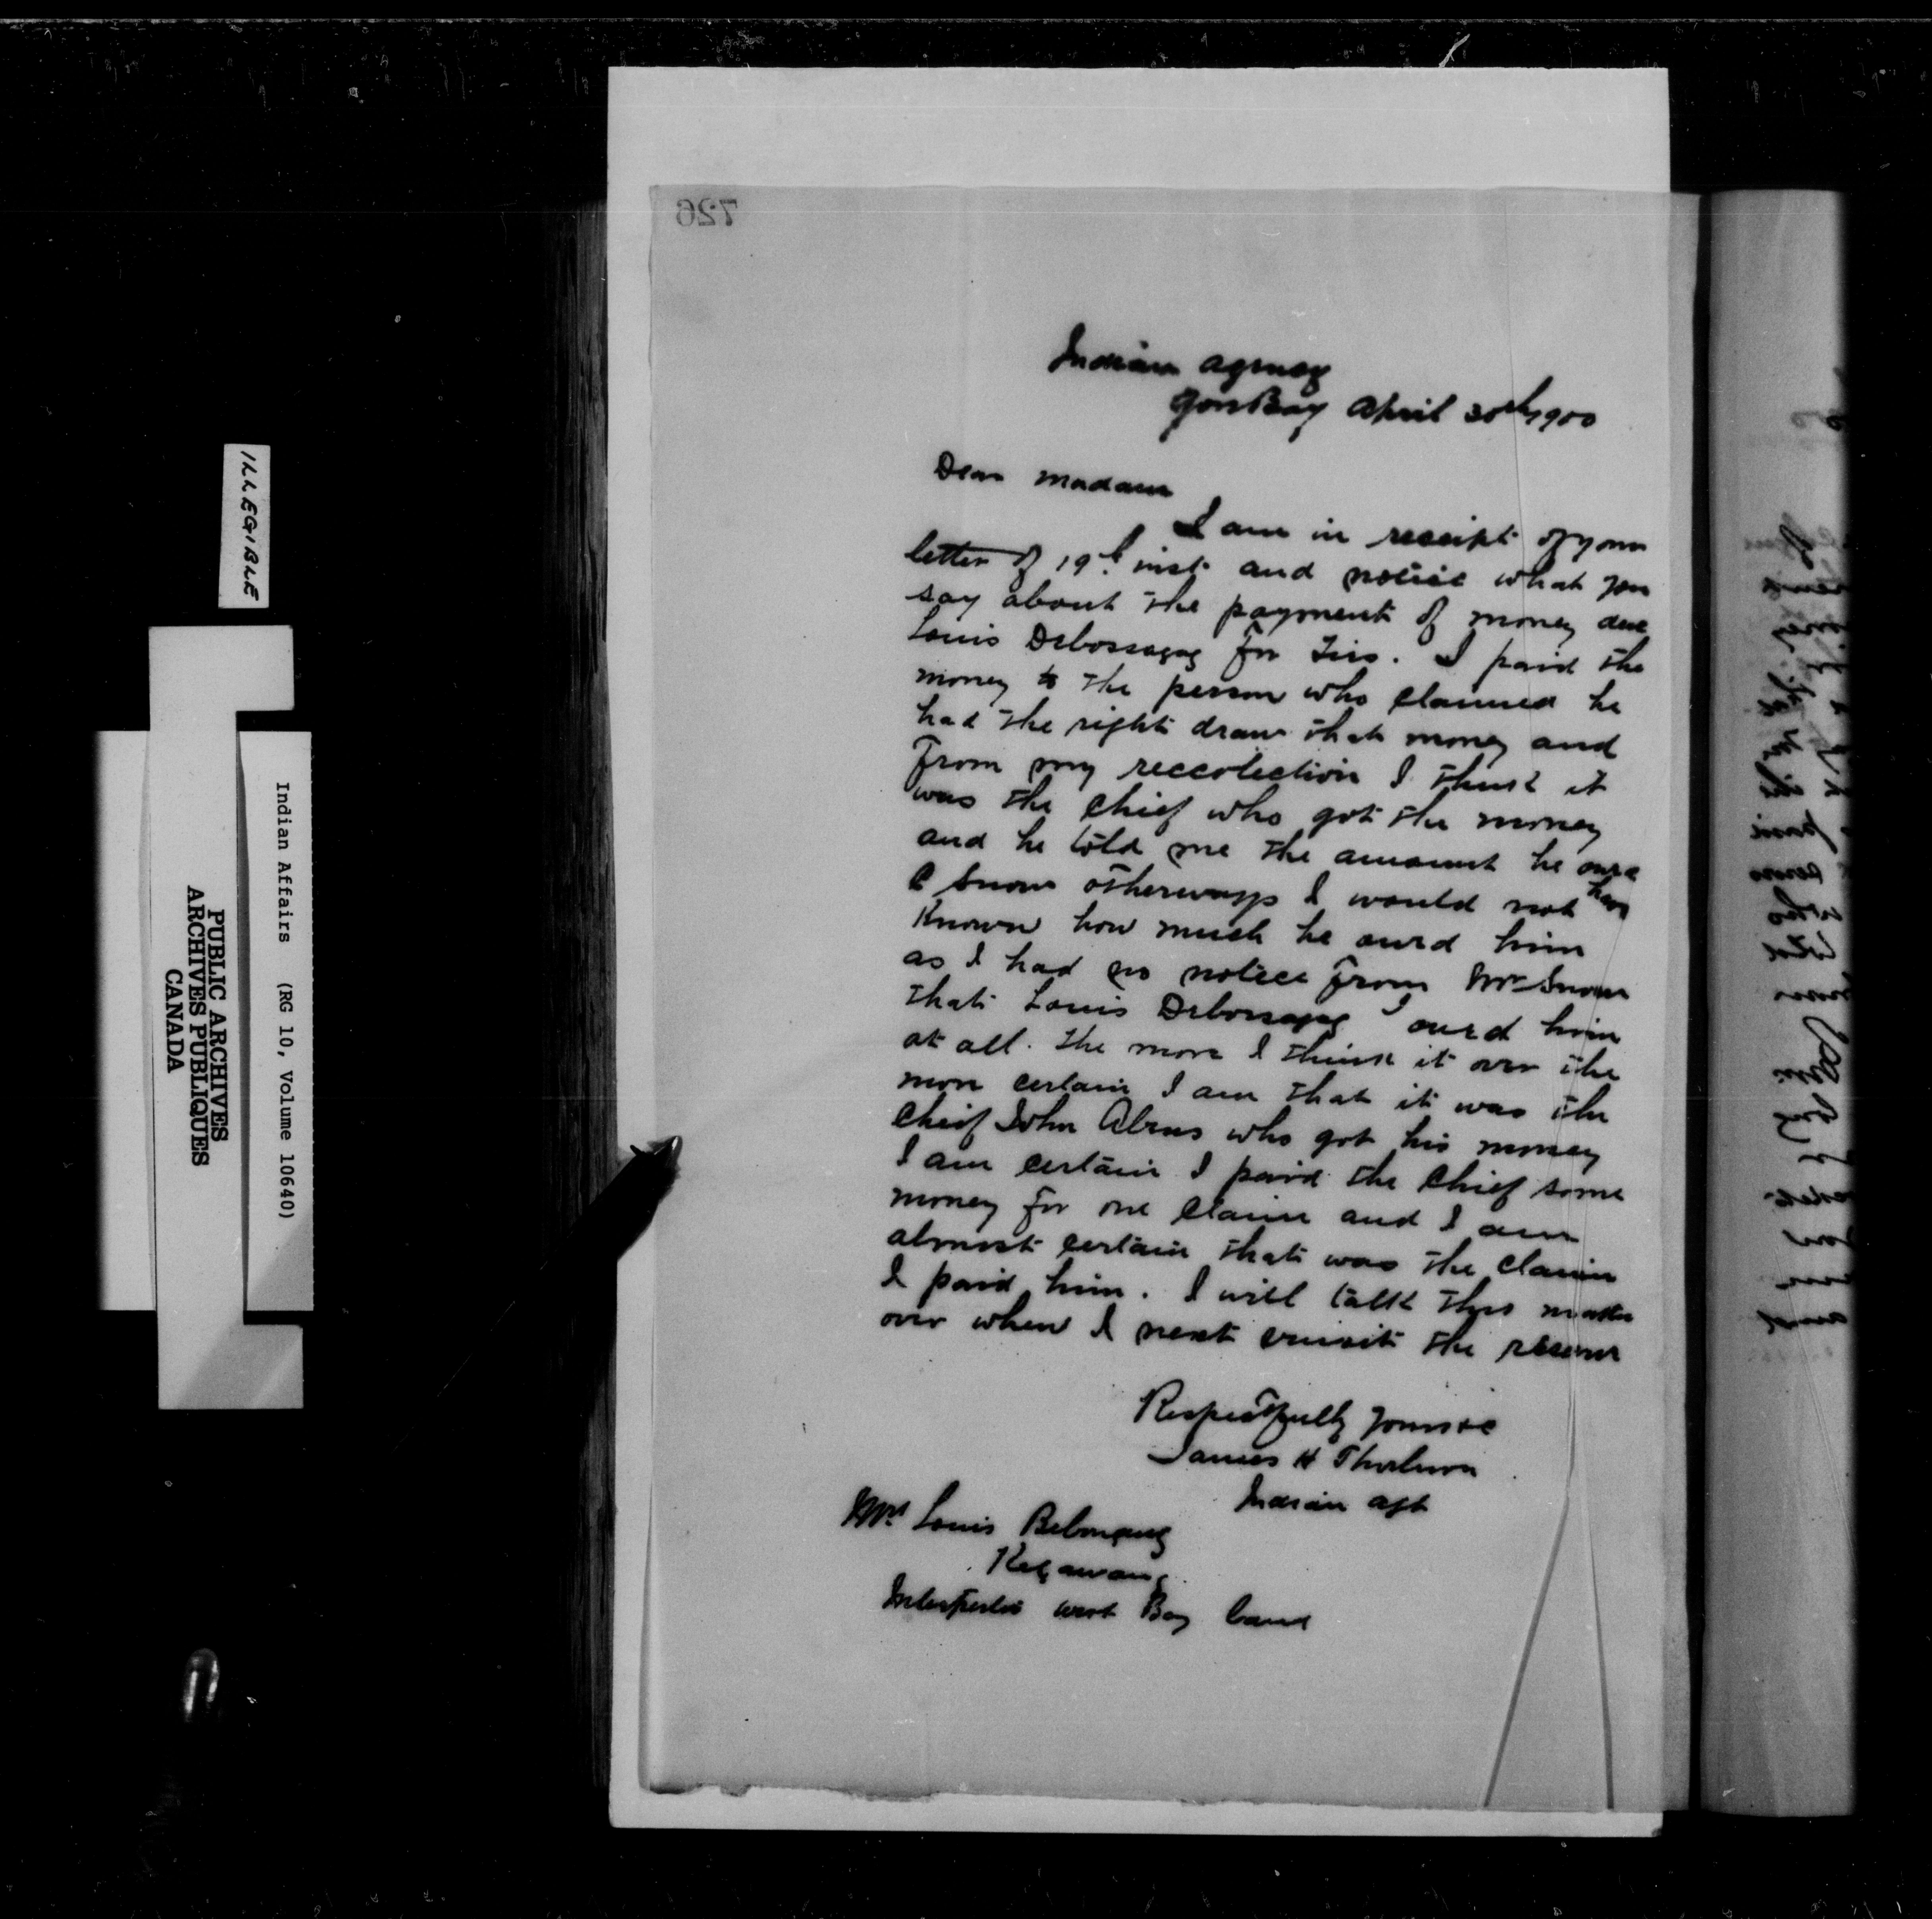 726
Indian Agency
Gore Bay April 30th 1900
Dear Madam
I am in receipt of your
letter of 19th inst and notice what you
say about the payment of money due
Louis Debossagag for Ties. I paid the
money to the person who claimed he
had the right draw that money and
from my reccolection I think it
was the Chief who got the money
and he told me the amount he owed
Snow otherways I would not have
Known how much he owed him
as I had no notice from Mr Snow
that Louis Debossagag owed him
at all. The more I think it over the
more certain I am that it was the
Chief John Abrus who got his money
I am certain I paid the Chief some
money for one claim and I am
almost certain that was the claim
I paid him. I will talk this matter
over when I next visit the reserve
Respectfully Yours &c
James H Thorburn
Indian Agt
Mrs Louis
West Bay band
ILLEGIBLE
Indian Affairs (RG 10, Volume 10640)
PUBLIC ARCHIVES
ARCHIVES PUBLIQUES
CANADA